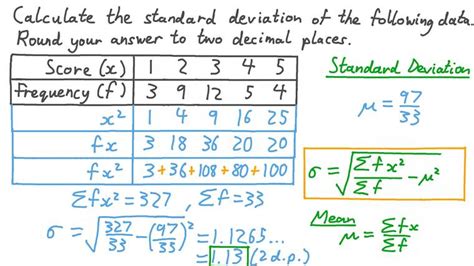 Calculate the standard deviation of the following data.
Round your answer to two decimal places.
Score (x) 1 2 3 4 5
Frequency (f) 3 9 12 5 4
x² 1 4 9 16 25
fx 3 18 36 20 20
fx² 3+36+108+80+100
Σfx² = 327 , Σf = 33
σ = √(327/33 − (97/33)²) = 1.1265...
= 1.13 (2 d.p.)
Standard Deviation
μ = 97/33
σ = √(Σfx²/Σf − μ²)
Mean
μ = Σfx/Σf